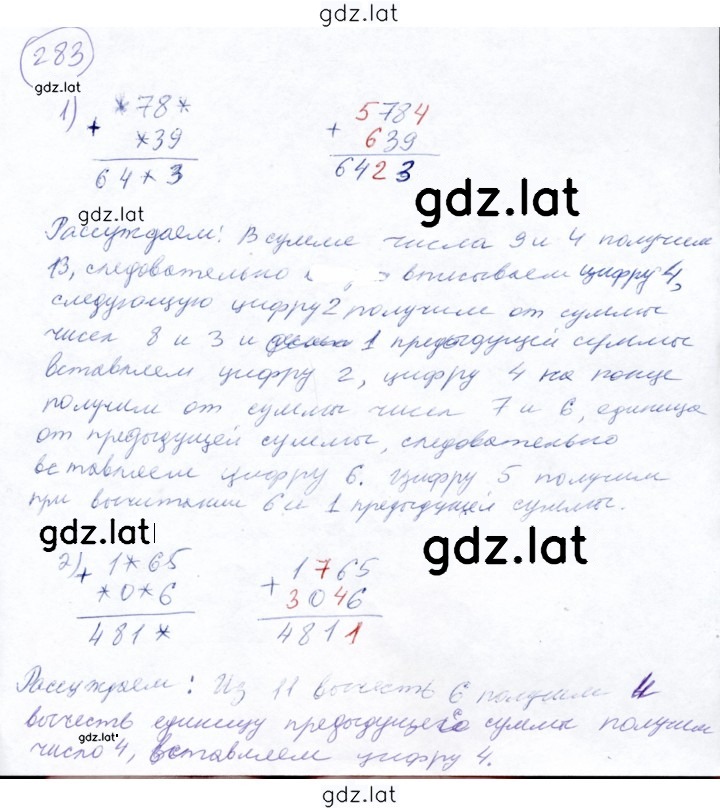 gdz.lat
283
gdz.lat
1) + *78* + 5784
*39 639
64*3 6423
gdz.lat
gdz.lat
Рассуждаем: В сумме числа 9 и 4 получим
13, следовательно вписываем цифру 4,
следующую цифру 2 получим от суммы
чисел 8 и 3 и 1 предыдущей суммы
вставляем цифру 2, цифру 4 на конце
получим от суммы чисел 7 и 6, единица
от предыдущей суммы, следовательно
вставляем цифру 6. Цифру 5 получим
при вычитании 6 и 1 предыдущей суммы.
gdz.lat
gdz.lat
2) + 1*65 + 1765
*0*6 3046
481* 4811
Рассуждаем: Из 11 вычесть 6 получим и
вычесть единицу предыдущего суммы получим
gdz.lat
число 4, вставляем цифру 4.
gdz.lat